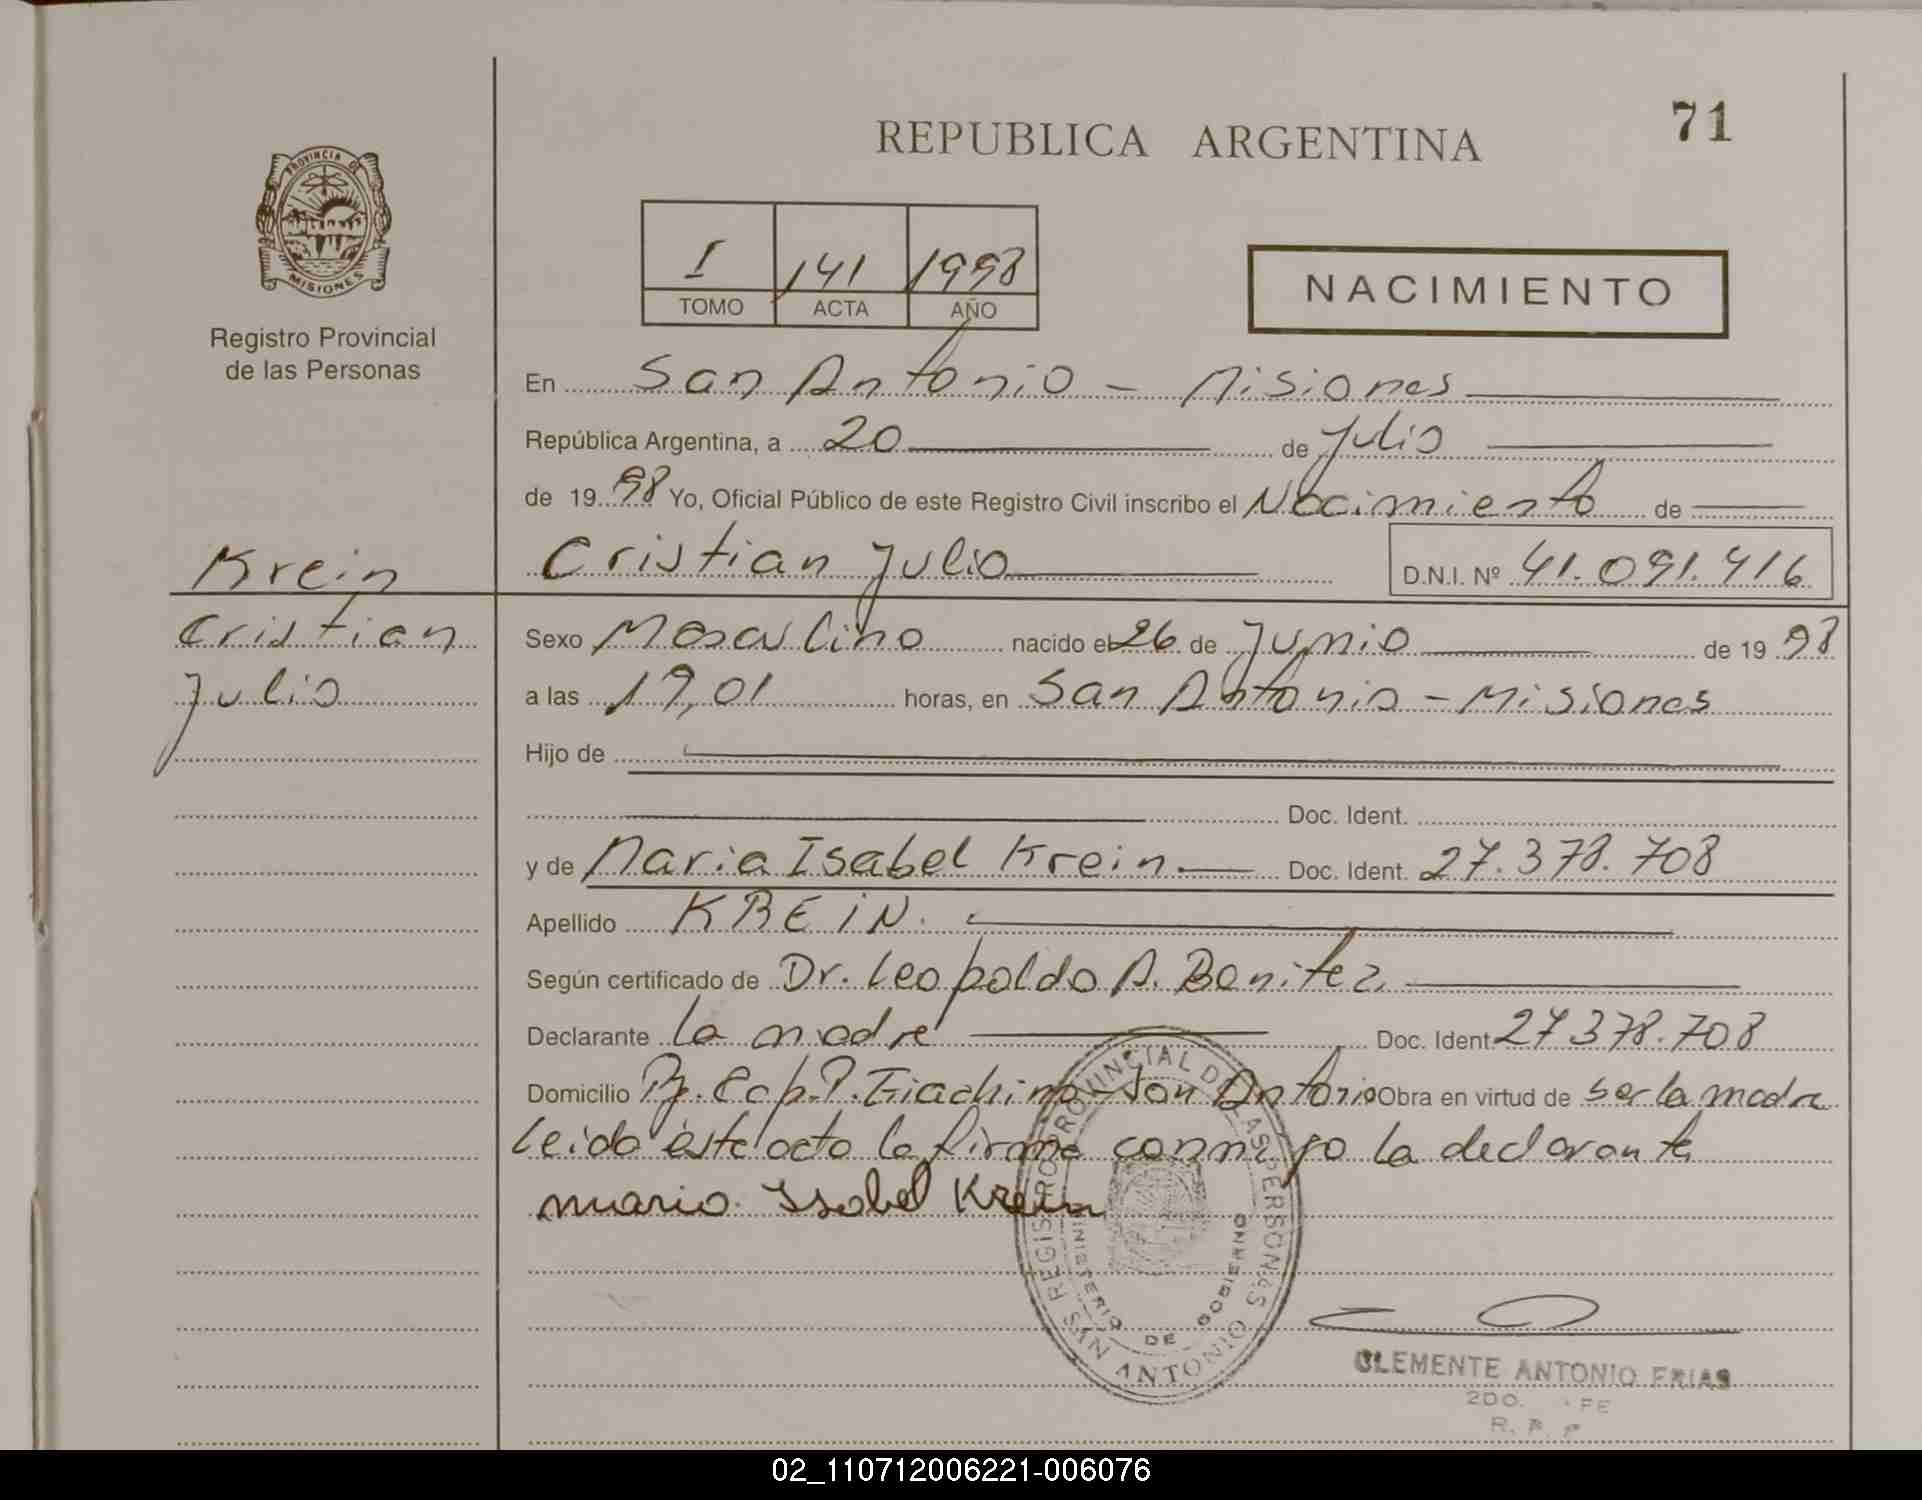 71
REPUBLICA ARGENTINA
PROVINCIA DE
MISIONES
Registro Provincial
de las Personas
I 141 1998
TOMO ACTA AÑO
NACIMIENTO
En San Antonio - Misiones
República Argentina, a 20 de Julio
de 1998 Yo, Oficial Público de este Registro Civil inscribo el Nacimiento de
Krein
Cristian
Julio
Cristian Julio D.N.I. Nº 41.091.416
Sexo Masculino nacido el 26 de Junio de 1998
a las 19,01 horas, en San Antonio - Misiones
Hijo de
Doc. Ident.
y de Maria Isabel Krein. Doc. Ident. 27.378.708
Apellido KREIN.
Según certificado de Dr. Leopoldo A. Benitez.
Declarante La madre Doc. Ident 27378.708
Domicilio San Antonio Obra en virtud de ser la madre
Leida este acto la firma conmigo la declarante
Maria Isabel Krein
REGISTRO PROVINCIAL DE LAS PERSONAS
MINISTERIO DE GOBIERNO
SAN ANTONIO
CLEMENTE ANTONIO FRIAS
2DO.
02_110712006221-006076